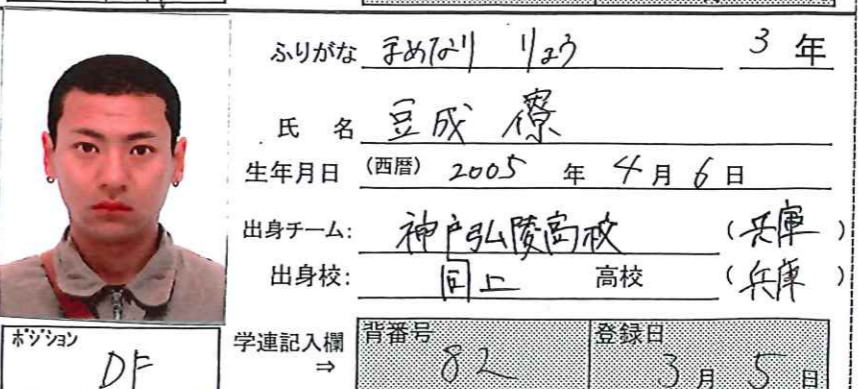 ふりがな まめなり りょう 3年
氏 名 豆成 僚
生年月日 (西暦) 2005 年 4月 6日
出身チーム: 神戸弘陵高校 (兵庫)
出身校: 同上 高校 (兵庫)
ポジション DF
学連記入欄 ⇒
背番号 82
登録日 3月 5日